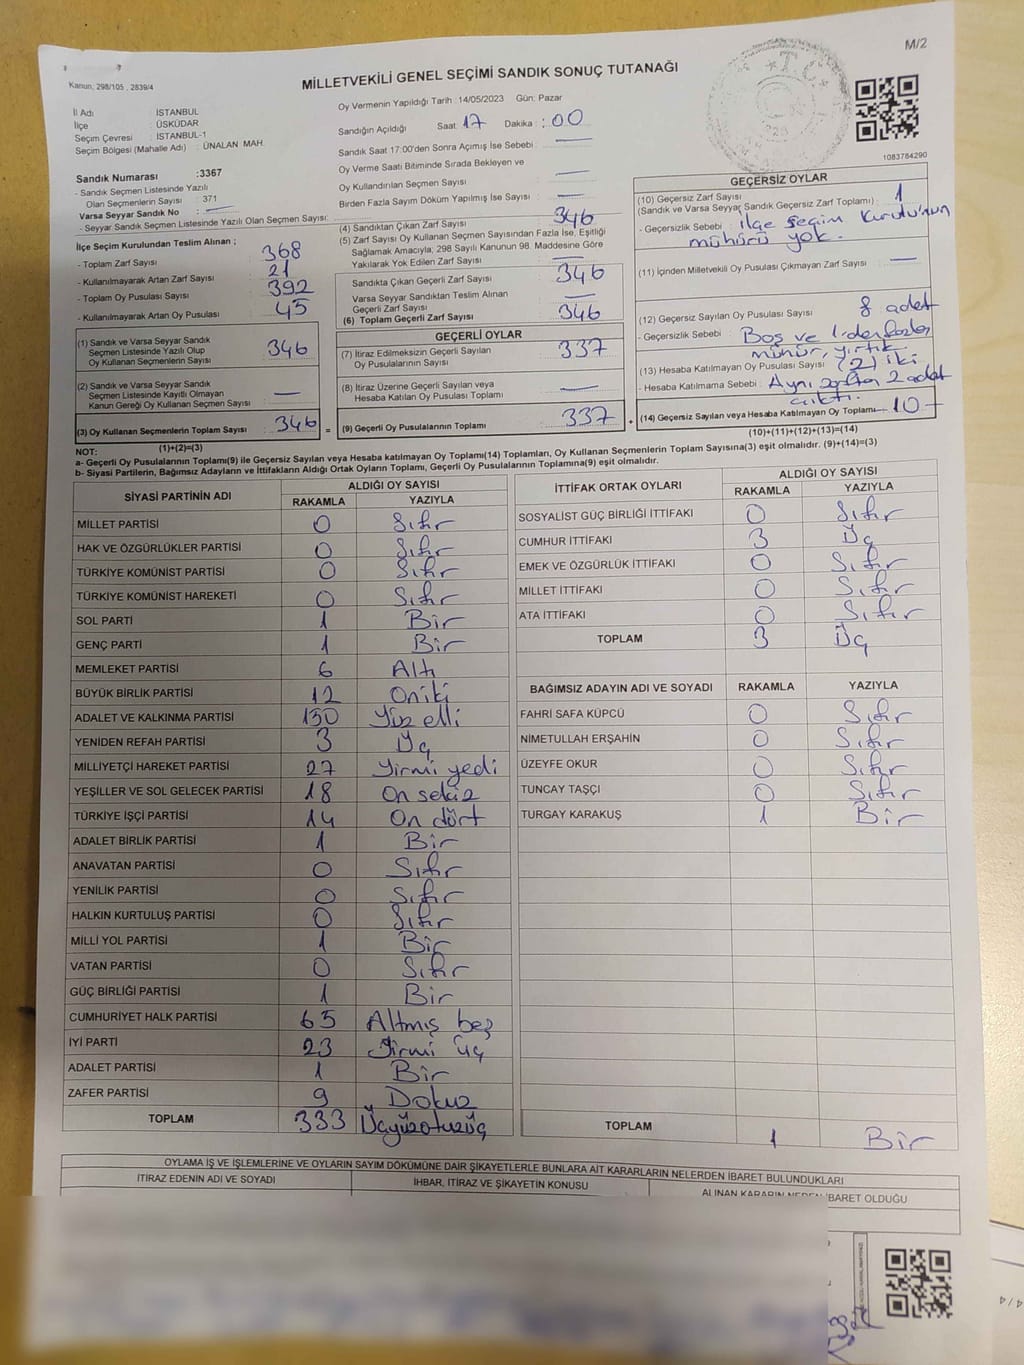 M/2
Kanun; 298/105 , 2839/4
MİLLETVEKİLİ GENEL SEÇİMİ SANDIK SONUÇ TUTANAĞI
İl Adı : İSTANBUL
İlçe : ÜSKÜDAR
Seçim Çevresi : İSTANBUL-1
Seçim Bölgesi (Mahalle Adı) : ÜNALAN MAH.
Oy Vermenin Yapıldığı Tarih : 14/05/2023 Gün: Pazar
Sandığın Açıldığı Saat: 17 Dakika : 00
Sandık Saat 17:00'den Sonra Açımış İse Sebebi : —
Oy Verme Saati Bitiminde Sırada Bekleyen ve
Oy Kullandırılan Seçmen Sayısı : —
Birden Fazla Sayım Döküm Yapılmış İse Sayısı : —
T.C.
1083784290
Sandık Numarası :3367
- Sandık Seçmen Listesinde Yazılı
Olan Seçmenlerin Sayısı : 371
Varsa Seyyar Sandık No : —
- Seyyar Sandık Seçmen Listesinde Yazılı Olan Seçmen Sayısı:
İlçe Seçim Kurulundan Teslim Alınan ;
- Toplam Zarf Sayısı : 368
- Kullanılmayarak Artan Zarf Sayısı : 21
- Toplam Oy Pusulası Sayısı : 392
- Kullanılmayarak Artan Oy Pusulası : 45
(1) Sandık ve Varsa Seyyar Sandık
Seçmen Listesinde Yazılı Olup
Oy Kullanan Seçmenlerin Sayısı : 346
(2) Sandık ve Varsa Seyyar Sandık
Seçmen Listesinde Kayıtlı Olmayan
Kanun Gereği Oy Kullanan Seçmen Sayısı : —
(3) Oy Kullanan Seçmenlerin Toplam Sayısı : 346 =
(1)+(2)=(3)
(4) Sandıktan Çıkan Zarf Sayısı : 346
(5) Zarf Sayısı Oy Kullanan Seçmen Sayısından Fazla İse, Eşitliği
Sağlamak Amacıyla; 298 Sayılı Kanunun 98. Maddesine Göre
Yakılarak Yok Edilen Zarf Sayısı : —
Sandıkta Çıkan Geçerli Zarf Sayısı : 346
Varsa Seyyar Sandıktan Teslim Alınan
Geçerli Zarf Sayısı : —
(6) Toplam Geçerli Zarf Sayısı : 346
GEÇERLİ OYLAR
(7) İtiraz Edilmeksizin Geçerli Sayılan
Oy Pusulalarının Sayısı : 337
(8) İtiraz Üzerine Geçerli Sayılan veya
Hesaba Katılan Oy Pusulası Toplamı : —
(9) Geçerli Oy Pusulalarının Toplamı : 337 +
GEÇERSİZ OYLAR
(10) Geçersiz Zarf Sayısı : 1
(Sandık ve Varsa Seyyar Sandık Geçersiz Zarf Toplamı) :
- Geçersizlik Sebebi : ilçe seçim kurulu'nun
mühürü yok.
(11) İçinden Milletvekili Oy Pusulası Çıkmayan Zarf Sayısı : —
(12) Geçersiz Sayılan Oy Pusulası Sayısı : 8 adet
- Geçersizlik Sebebi : Boş ve 1'den fazla
mühür, yırtık
(13) Hesaba Katılmayan Oy Pusulası Sayısı : (2) iki
- Hesaba Katılmama Sebebi : Aynı zarftan 2 adet
çıktı.
(14) Geçersiz Sayılan veya Hesaba Katılmayan Oy Toplamı : -10-
(10)+(11)+(12)+(13)=(14)
NOT:
a- Geçerli Oy Pusulalarının Toplamı(9) ile Geçersiz Sayılan veya Hesaba katılmayan Oy Toplamı(14) Toplamları, Oy Kullanan Seçmenlerin Toplam Sayısına(3) eşit olmalıdır. (9)+(14)=(3)
b- Siyasi Partilerin, Bağımsız Adayların ve İttifakların Aldığı Ortak Oyların Toplamı, Geçerli Oy Pusulalarının Toplamına(9) eşit olmalıdır.
SİYASİ PARTİNİN ADI ALDIĞI OY SAYISI
RAKAMLA YAZIYLA
MİLLET PARTİSİ 0 Sıfır
HAK VE ÖZGÜRLÜKLER PARTİSİ 0 Sıfır
TÜRKİYE KOMÜNİST PARTİSİ 0 Sıfır
TÜRKİYE KOMÜNİST HAREKETİ 0 Sıfır
SOL PARTİ 1 Bir
GENÇ PARTİ 1 Bir
MEMLEKET PARTİSİ 6 Altı
BÜYÜK BİRLİK PARTİSİ 12 Oniki
ADALET VE KALKINMA PARTİSİ 150 Yüz elli
YENİDEN REFAH PARTİSİ 3 Üç
MİLLİYETÇİ HAREKET PARTİSİ 27 Yirmi yedi
YEŞİLLER VE SOL GELECEK PARTİSİ 18 On sekiz
TÜRKİYE İŞÇİ PARTİSİ 14 On dört
ADALET BİRLİK PARTİSİ 1 Bir
ANAVATAN PARTİSİ 0 Sıfır
YENİLİK PARTİSİ 0 Sıfır
HALKIN KURTULUŞ PARTİSİ 0 Sıfır
MİLLİ YOL PARTİSİ 1 Bir
VATAN PARTİSİ 0 Sıfır
GÜÇ BİRLİĞİ PARTİSİ 1 Bir
CUMHURİYET HALK PARTİSİ 65 Altmış beş
İYİ PARTİ 23 Yirmi üç
ADALET PARTİSİ 1 Bir
ZAFER PARTİSİ 9 Dokuz
TOPLAM 333 Üçyüzotuzüç
İTTİFAK ORTAK OYLARI ALDIĞI OY SAYISI
RAKAMLA YAZIYLA
SOSYALİST GÜÇ BİRLİĞİ İTTİFAKI 0 Sıfır
CUMHUR İTTİFAKI 3 Üç
EMEK VE ÖZGÜRLÜK İTTİFAKI 0 Sıfır
MİLLET İTTİFAKI 0 Sıfır
ATA İTTİFAKI 0 Sıfır
TOPLAM 3 Üç
BAĞIMSIZ ADAYIN ADI VE SOYADI RAKAMLA YAZIYLA
FAHRİ SAFA KÜPCÜ 0 Sıfır
NİMETULLAH ERŞAHİN 0 Sıfır
ÜZEYFE OKUR 0 Sıfır
TUNCAY TAŞÇI 0 Sıfır
TURGAY KARAKUŞ 1 Bir
TOPLAM 1 Bir
OYLAMA İŞ VE İŞLEMLERİNE VE OYLARIN SAYIM DÖKÜMÜNE DAİR ŞİKAYETLERLE BUNLARA AİT KARARLARIN NELERDEN İBARET BULUNDUKLARI
İTİRAZ EDENİN ADI VE SOYADI İHBAR, İTİRAZ VE ŞİKAYETİN KONUSU ALINAN KARARIN NEDEN İBARET OLDUĞU